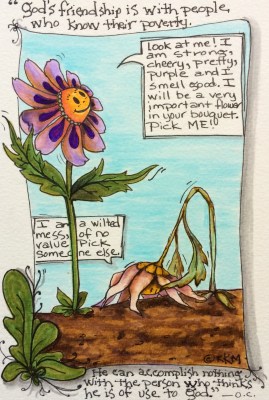 "God's friendship is with people
who know their poverty.
Look at me! I
am strong,
cheery, pretty,
purple and I
smell good. I
will be a very
important flower
in your bouquet.
Pick ME!
I am a wilted
mess, of no
value. Pick
someone else.
©KKM
He can accomplish nothing
with the person who thinks
he is of use to God." — o.c.